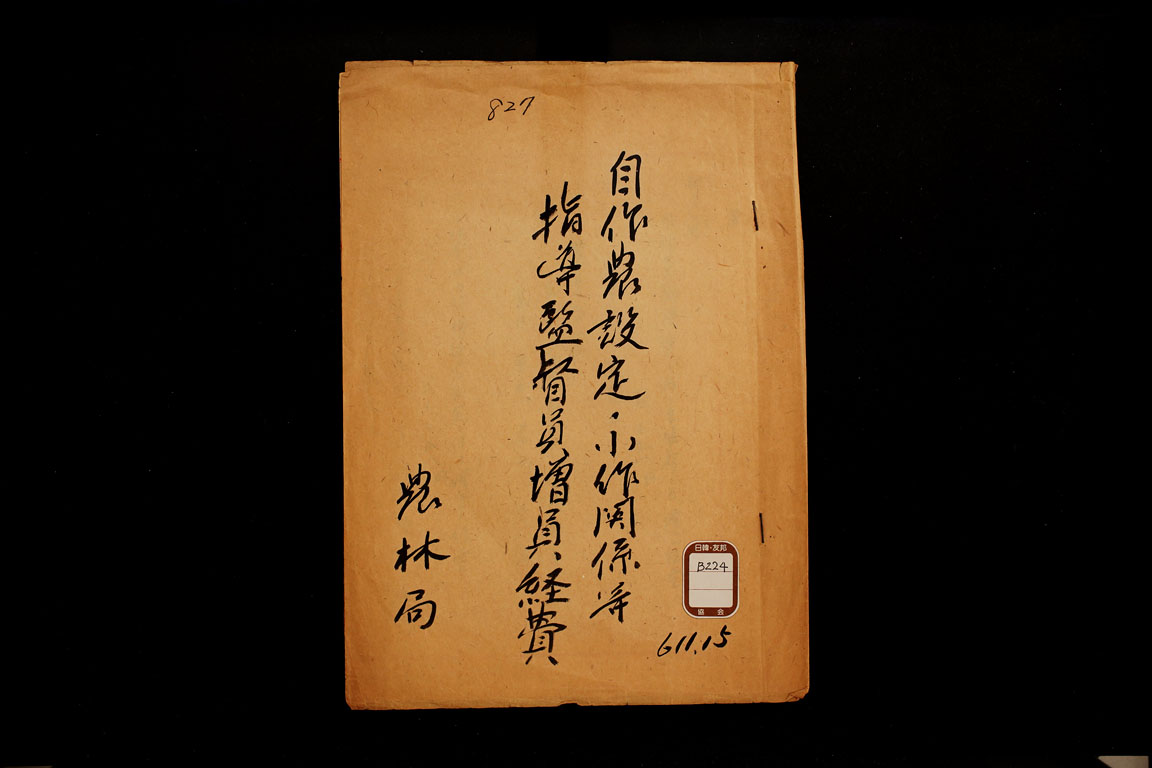 827
自作農設定・小作関係等
指導監督員増員経費
農林局
日韓・友邦
B224
協会
611.15